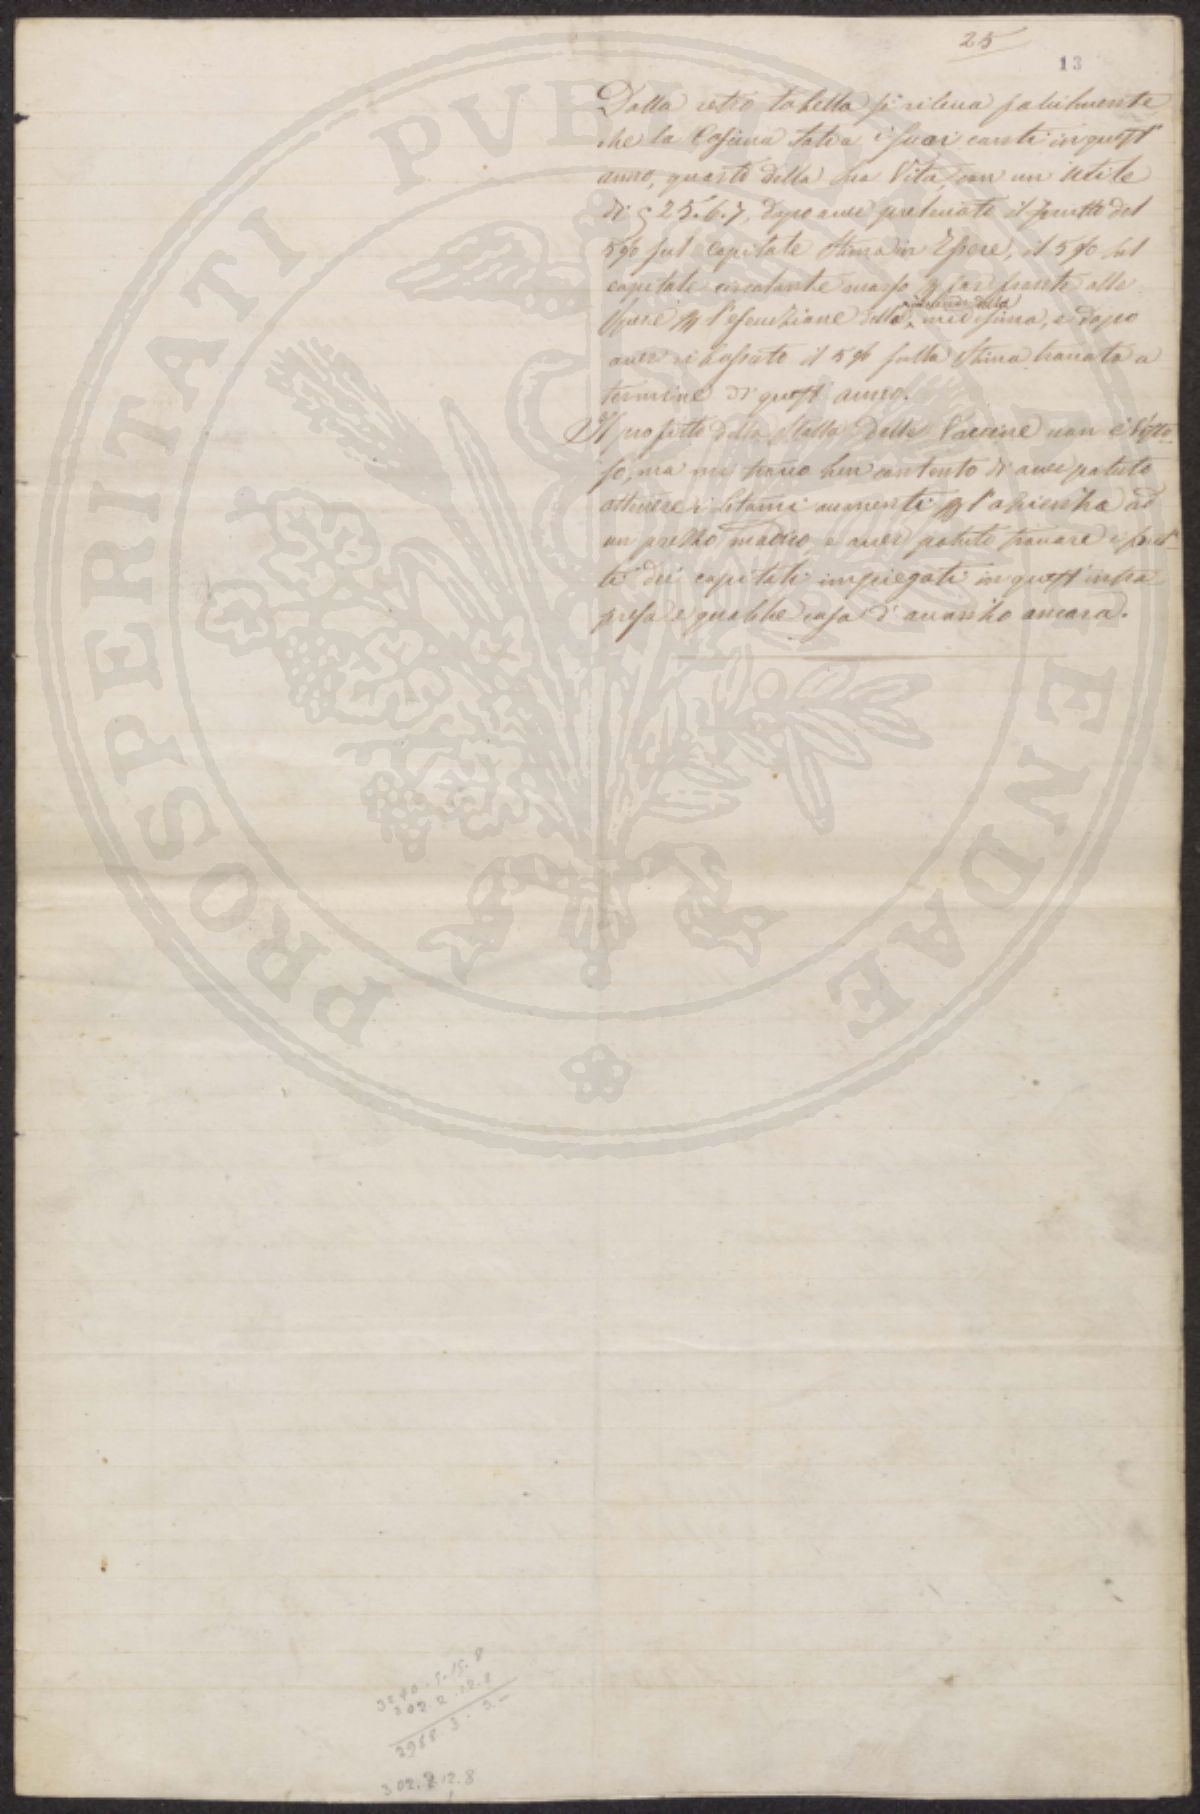 25
13
Dalla retro tabella si rileva facilmente
che la Cascina salva i suoi conti in quest'
anno, quarto della sua Vita, con un Utile
di 25.6.7, dopo aver prelevato il frutto del
5% sul capitale Stima in Essere, il 5% sul
capitale circolante per far fronte alle
Spese p l'esecuzione della medesima, e dopo
aver ribassato il 5% sulla Stima trovata a
termine di quest' anno.
Il profitto della Stalla delle Vaccine non è Visto-
so, ma mi trovo ben contento di aver potuto
ottenere i letami occorrenti p l'azienda ad
un prezzo modico, e aver potuto trovare i frut-
ti dei capitali impiegati in quest' intra-
presa e qualche cosa d'avanzo ancora.
302.2.12.8
2988.3.3.-
302.2.12.8
PROSPERITATI PVBLICAE AVGENDAE